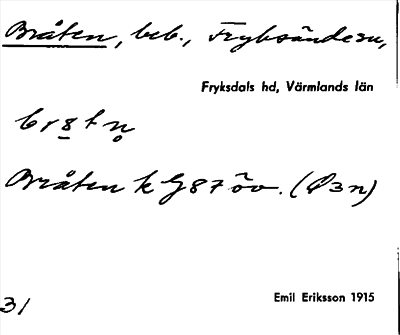 Bråten, beb., Fryksände sn,
Fryksdals hd, Värmlands län
br8tn̥
Bråten k G87 öv. (Ø3n)
31
Emil Eriksson 1915